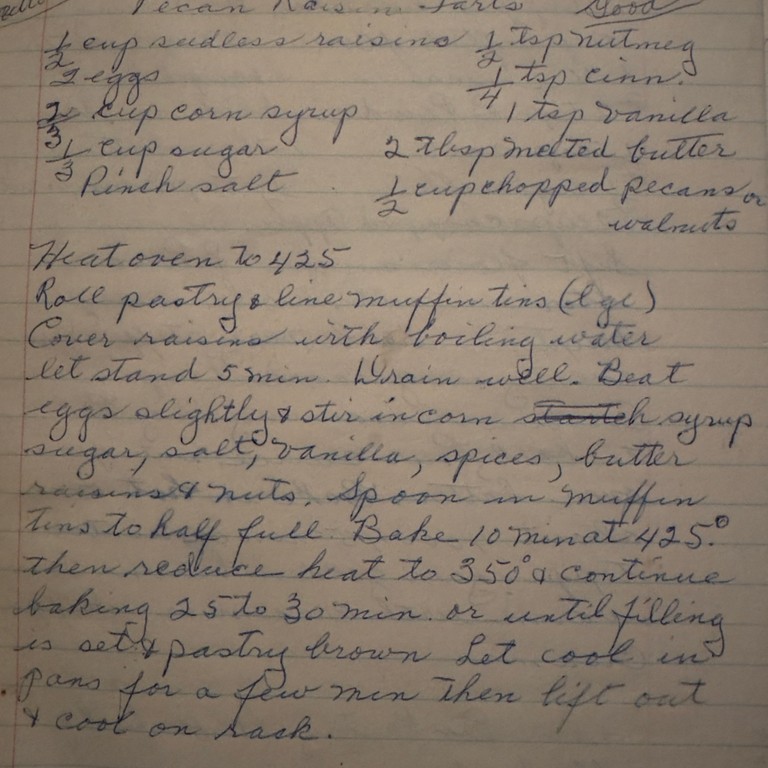 Pecan Raisin Tarts Good
1/2 cup seedless raisins 1/2 tsp nutmeg
2 eggs 1/4 tsp cinn.
2/3 cup corn syrup 1 tsp vanilla
1/3 cup sugar 2 tbsp melted butter
Pinch salt 1/2 cup chopped pecans or
walnuts
Heat oven to 425
Roll pastry & line muffin tins (lge)
Cover raisins with boiling water
let stand 5 min. Drain well. Beat
eggs slightly & stir in corn starch syrup
sugar, salt, vanilla, spices, butter
raisins & nuts. Spoon in muffin
tins to half full. Bake 10 min at 425°.
then reduce heat to 350° & continue
baking 25 to 30 min. or until filling
is set & pastry brown Let cool in
pans for a few min then lift out
& cool on rack.